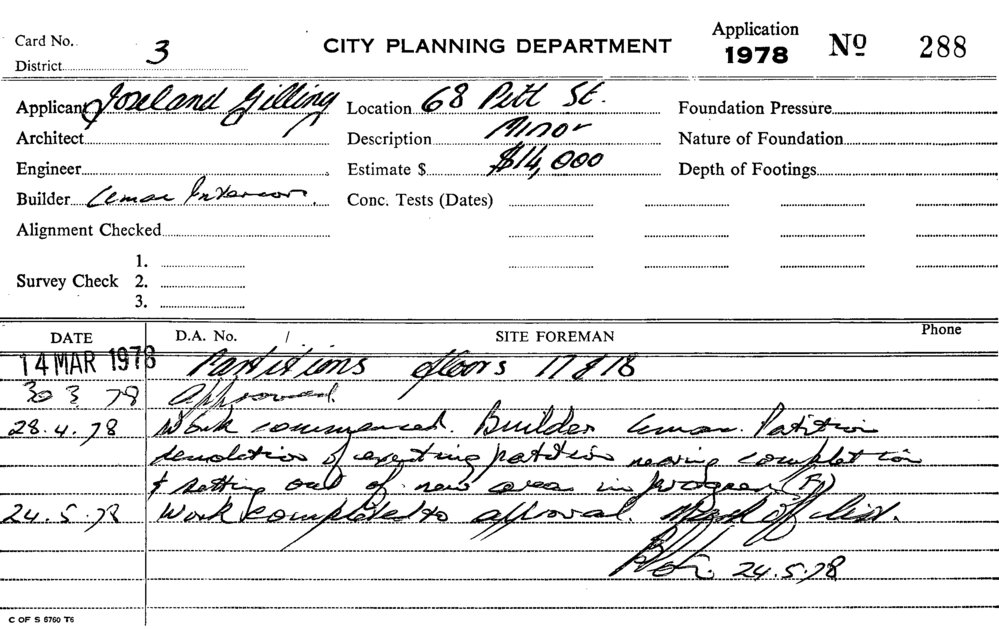 Card No. CITY PLANNING DEPARTMENT Application 1978 Nº 288
District 3
Applicant Joseland Gilling Location 68 Pitt St. Foundation Pressure
Architect Description Minor Nature of Foundation
Engineer Estimate $ $14,000 Depth of Footings
Builder Lemac Interiors. Conc. Tests (Dates)
Alignment Checked
1.
Survey Check 2.
3.
DATE D.A. No. / SITE FOREMAN Phone
14 MAR 1978 Partitions floors 17 & 18
30 3 78 Approved
28.4.78 Work commenced. Builder Partition
demolition of existing partition nearing completion
& setting out of new areas in progress
24.5.78 Work completed to approval. Mark off list.
24.5.78
C OF S 6760 T6